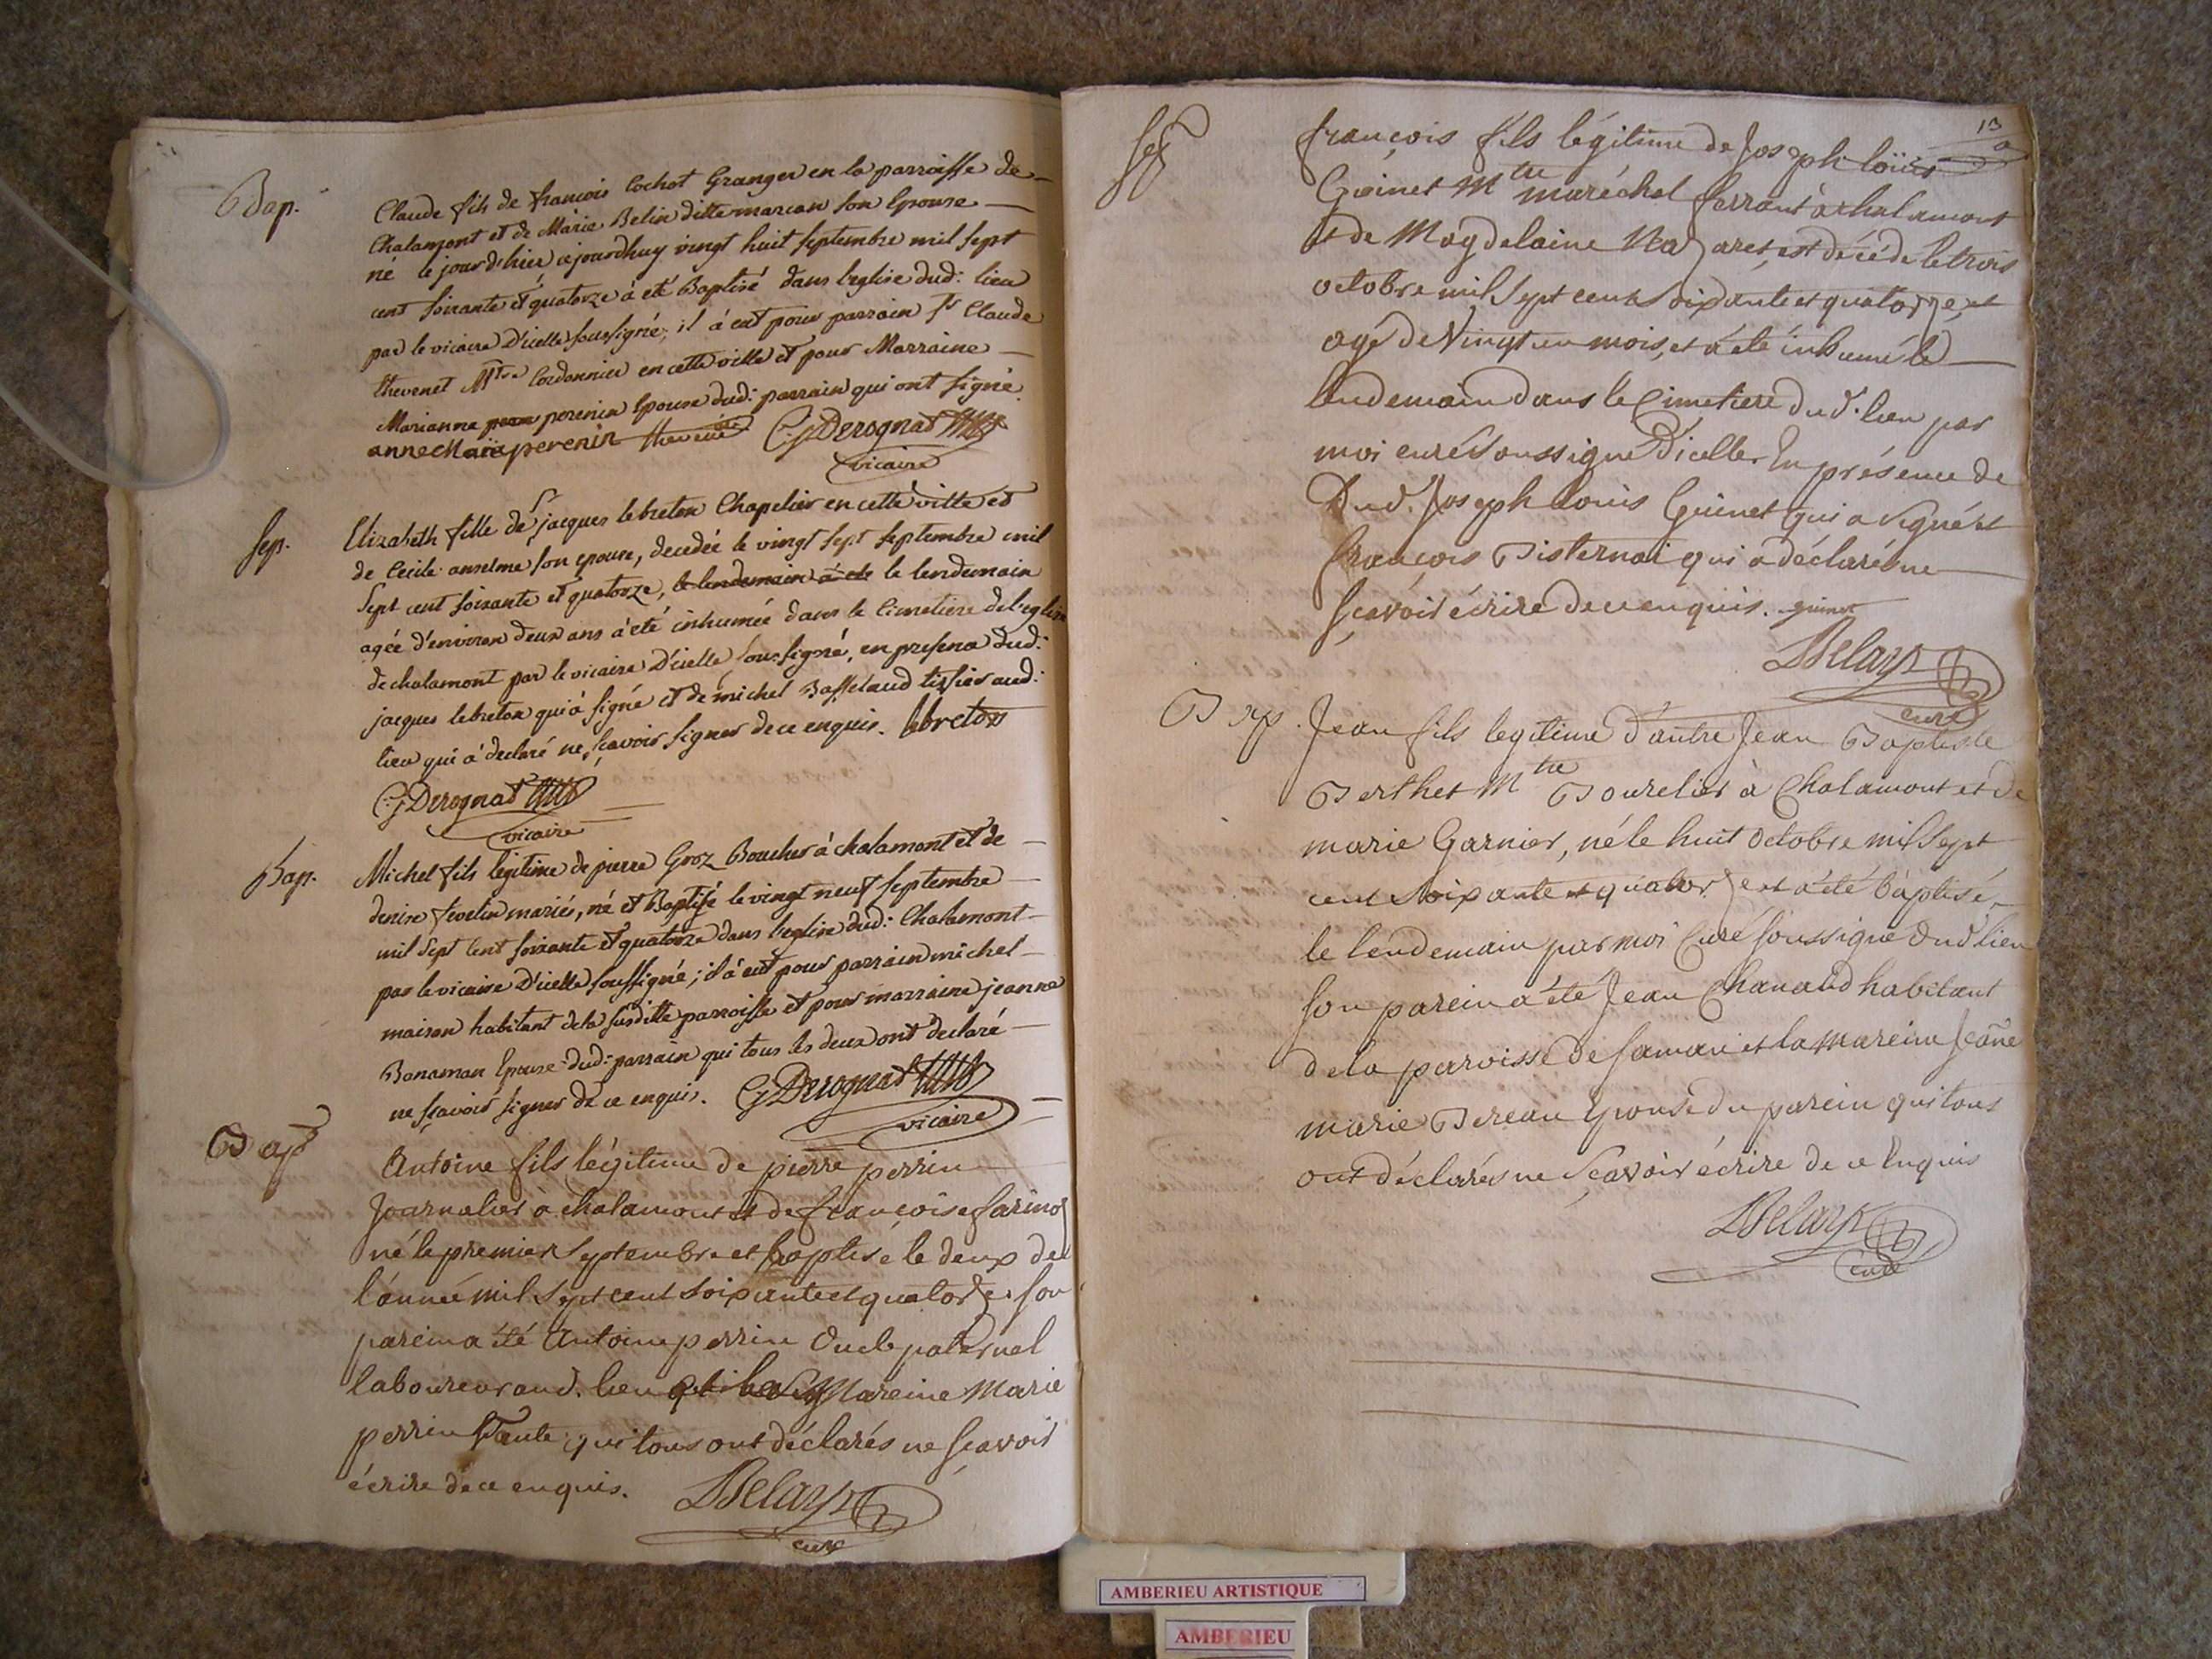 Bap.
Claude fils de francois Cochot Granger en la parroisse de
Chalamont et de Marie Belin ditte marcan son Epouse
né le jour d'hier ajourdhuy vingt huit septembre mil sept
cent soixante et quatorze à eté Baptisé dans l'eglise dud: lieu
par le vicaire D'icelle soussigné; il á eut pour parrain sr Claude
thevenet Mtre Cordonnier en cette ville et pour Marraine
Marianne perenin Epouse dud: parrain qui ont signé.
anne Maria perenin thevenet CjDerognat
vicaire
sep.
Elizabeth fille de jacques lebreton Chapelier en cette ville et
de Cecile anselme son epouse, decedée le vingt sept septembre mil
Sept cent soixante et quatorze, le lendemain á eté le lendemain
agée d'environ deux ans á eté inhumée dans le Cimetiere de l'eglise
de chalamont par le vicaire D'icelle soussigné, en presence dud:
jacques lebreton qui á signé et de michel Basselaud tissier aud:
lieu qui á declaré ne sçavoir signer de ce enquis. lebreton
CjDerognat
vicaire
Bap.
Michel fils legitime de pierre Groz Boucher á chalamont et de
denise fivelin mariés, né et Baptisé le vingt neuf septembre
mil sept cent soixante et quatorze dans l'eglise dud: Chalamont
par le vicaire D'icelle soussigné; il á eut pour parrain michel
maison habitant de la susditte parroisse et pour marraine jeanne
Banaman Epouse dud: parrain qui tous les deux ont declaré
ne sçavoir signer de ce enquis. CjDerognat
vicaire
Bap
Antoine fils légitime de pierre perrin
Journalier à chalamont et de françoise farinoz
né le premier Septembre et baptisé le deux de
l'année mil sept cent soixante et quatorze son
parein a été Antoine perrin Oncle paternel
laboureur aud. lieu Mareine Marie
perrin Tante qui tous ont déclarés ne sçavoir
écrire de ce enquis. Delaye
curé
13
Sep
françois fils légitime de Joseph loüis
Guinet Mtre maréchal ferrant à chalamont
et de Magdelaine Nazaret, est décédé le trois
octobre mil sept cent soixante et quatorze, et
agé de Vingt un mois, et a été inhumé le
lendemain dans le Cimetiere dud. lieu par
moi curé soussigné D'icelle. En présence de
Dud. Joseph Louis Guinet qui a signé et
françois Disternai qui a déclaré ne
sçavoir écrire de ce enquis. guinet
Delaye
curé
Bap.
Jean fils legitime d'autre Jean Baptiste
Berthet Mtre Bourelier à Chalamont et de
marie Garnier, né le huit Octobre mil sept
cent soixante et quatorze et a été baptisé
le lendemain par moi Curé soussigné dud lieu
son parein a été Jean Chanaud habitant
de la paroisse de samani et la Mareine Jeañe
marie Bereau Epouse du parein qui tous
ont déclarés ne sçavoir écrire de ce Enquis
Delaye
curé
AMBERIEU ARTISTIQUE
AMBERIEU